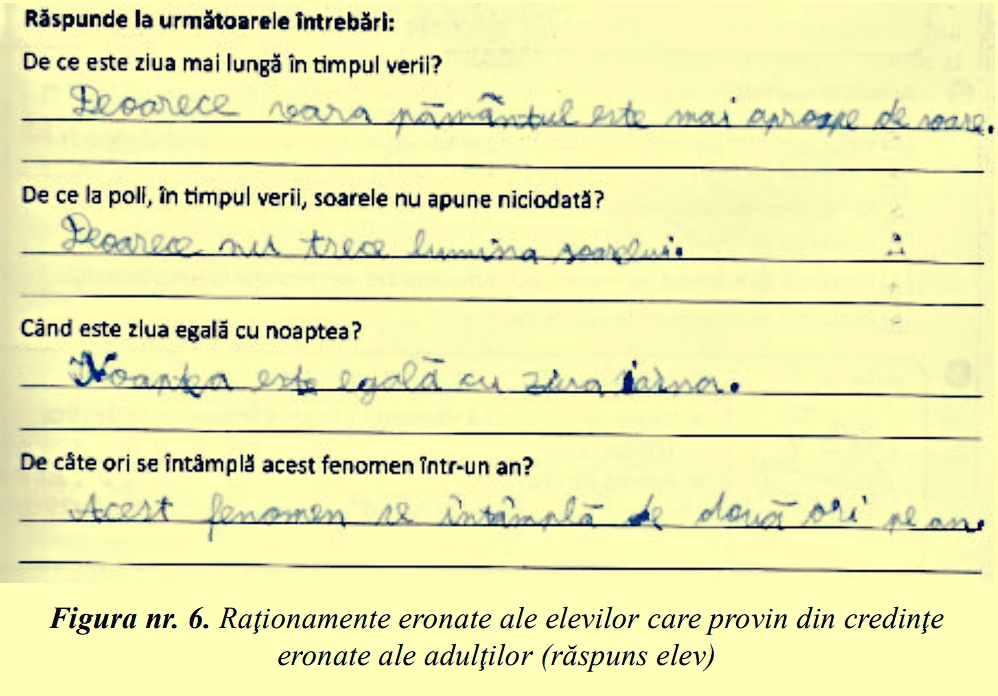 Răspunde la următoarele întrebări:
De ce este ziua mai lungă în timpul verii?
Deoarece vara pământul este mai aproape de soare.
De ce la poli, în timpul verii, soarele nu apune niciodată?
Deoarece nu trece lumina soarelui.
Când este ziua egală cu noaptea?
Noaptea este egală cu ziua iarna.
De câte ori se întâmplă acest fenomen într-un an?
Acest fenomen se întâmplă de două ori pe an.
Figura nr. 6. Raţionamente eronate ale elevilor care provin din credinţe
eronate ale adulţilor (răspuns elev)